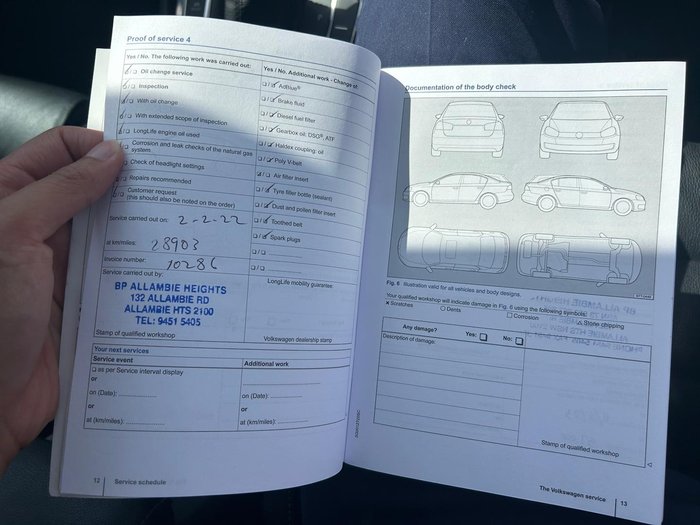 Proof of service 4
Yes / No. The following work was carried out:
Oil change service
Inspection
With oil change
With extended scope of inspection
LongLife engine oil used
Corrosion and leak checks of the natural gas
system.
Check of headlight settings
Repairs recommended
Customer request
(this should also be noted on the order)
Service carried out on: 2-2-22
at km/miles: 28903
Invoice number: 10286
Service carried out by:
BP ALLAMBIE HEIGHTS
132 ALLAMBIE RD
ALLAMBIE HTS 2100
TEL: 9451 5405
Stamp of qualified workshop
Yes / No. Additional work - Change of:
AdBlue®
Brake fluid
Diesel fuel filter
Gearbox oil: DSG®, ATF
Haldex coupling: oil
Poly V-belt
Air filter insert
Tyre filler bottle (sealant)
Dust and pollen filter insert
Toothed belt
Spark plugs
LongLife mobility guarantee:
Volkswagen dealership stamp
Your next services
Service event
as per Service interval display
or
on (Date):
or
at (km/miles):
Additional work
on (Date):
or
at (km/miles):
12 Service schedule
Documentation of the body check
Fig. 6 Illustration valid for all vehicles and body designs.
Your qualified workshop will indicate damage in Fig. 6 using the following symbols:
x Scratches ○ Dents □ Corrosion △ Stone chipping
Any damage? Yes: No:
Description of damage:
Stamp of qualified workshop
The Volkswagen service 13